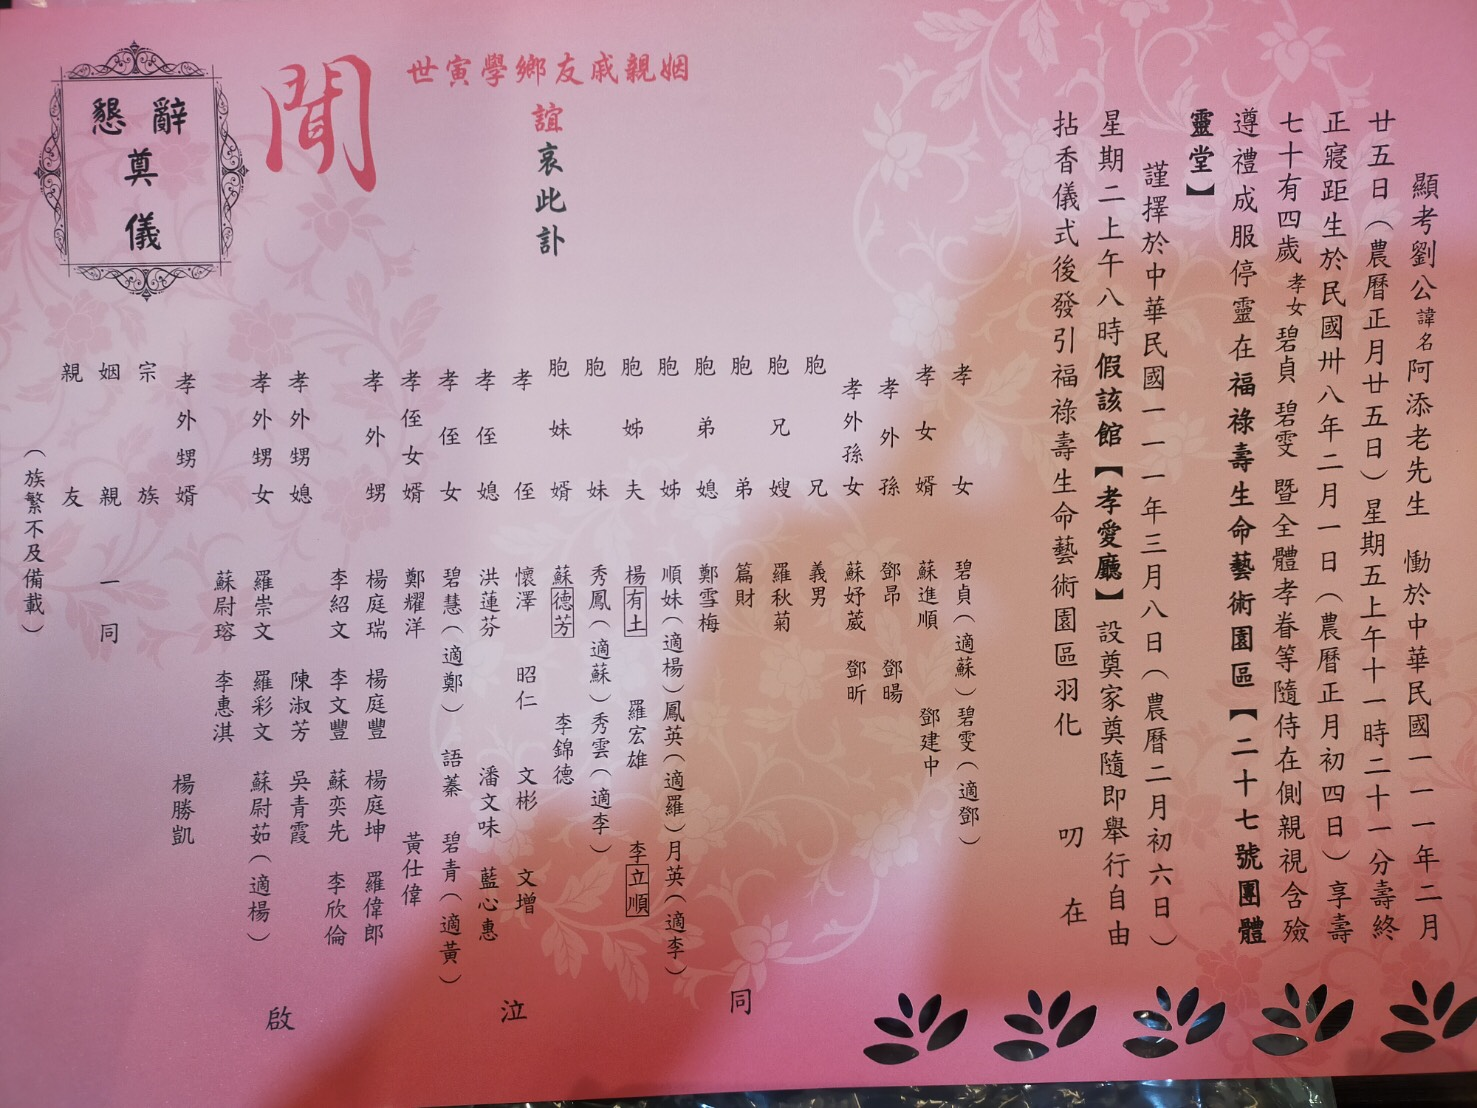 顯考劉公諱名阿添老先生　慟於中華民國一一一年二月
廿五日（農曆正月廿五日）星期五上午十一時二十一分壽終
正寢距生於民國卅八年二月一日（農曆正月初四日）享壽
七十有四歲孝女碧貞 碧雯 暨全體孝眷等隨侍在側親視含殮
遵禮成服停靈在福祿壽生命藝術園區【二十七號團體
靈堂】
謹擇於中華民國一一一年三月八日（農曆二月初六日）
星期二上午八時假該館【孝愛廳】設奠家奠隨即舉行自由
拈香儀式後發引福祿壽生命藝術園區羽化　叨　在
姻親戚友鄉學寅世
誼哀此訃
聞
孝女 碧貞（適蘇）碧雯（適鄧）
孝女婿 蘇進順 鄧建中
孝外孫 鄧昂 鄧暘
孝外孫女 蘇妤葳 鄧昕
胞兄 義男
胞兄嫂 羅秋菊
胞弟 篇財
胞弟媳 鄭雪梅
胞姊 順妹（適楊）鳳英（適羅）月英（適李）
胞姊夫 楊有土 羅宏雄 李立順
胞妹 秀鳳（適蘇）秀雲（適李）
胞妹婿 蘇德芳 李錦德
孝侄 懷澤 昭仁 文彬 文增
孝侄媳 洪蓮芬 潘文味 藍心惠
孝侄女 碧慧（適鄭） 語蓁 碧青（適黃）
孝侄女婿 鄭耀洋 黃仕偉
孝外甥 楊庭瑞 楊庭豐 楊庭坤 羅偉郎
李紹文 李文豐 蘇奕先 李欣倫
孝外甥媳 陳淑芳 吳青霞
孝外甥女 羅崇文 羅彩文 蘇尉茹（適楊）
蘇尉瑢 李惠淇
孝外甥婿 楊勝凱
宗族
姻親 一同
親友
（族繁不及備載）
同
泣
啟
辭
懇
奠
儀